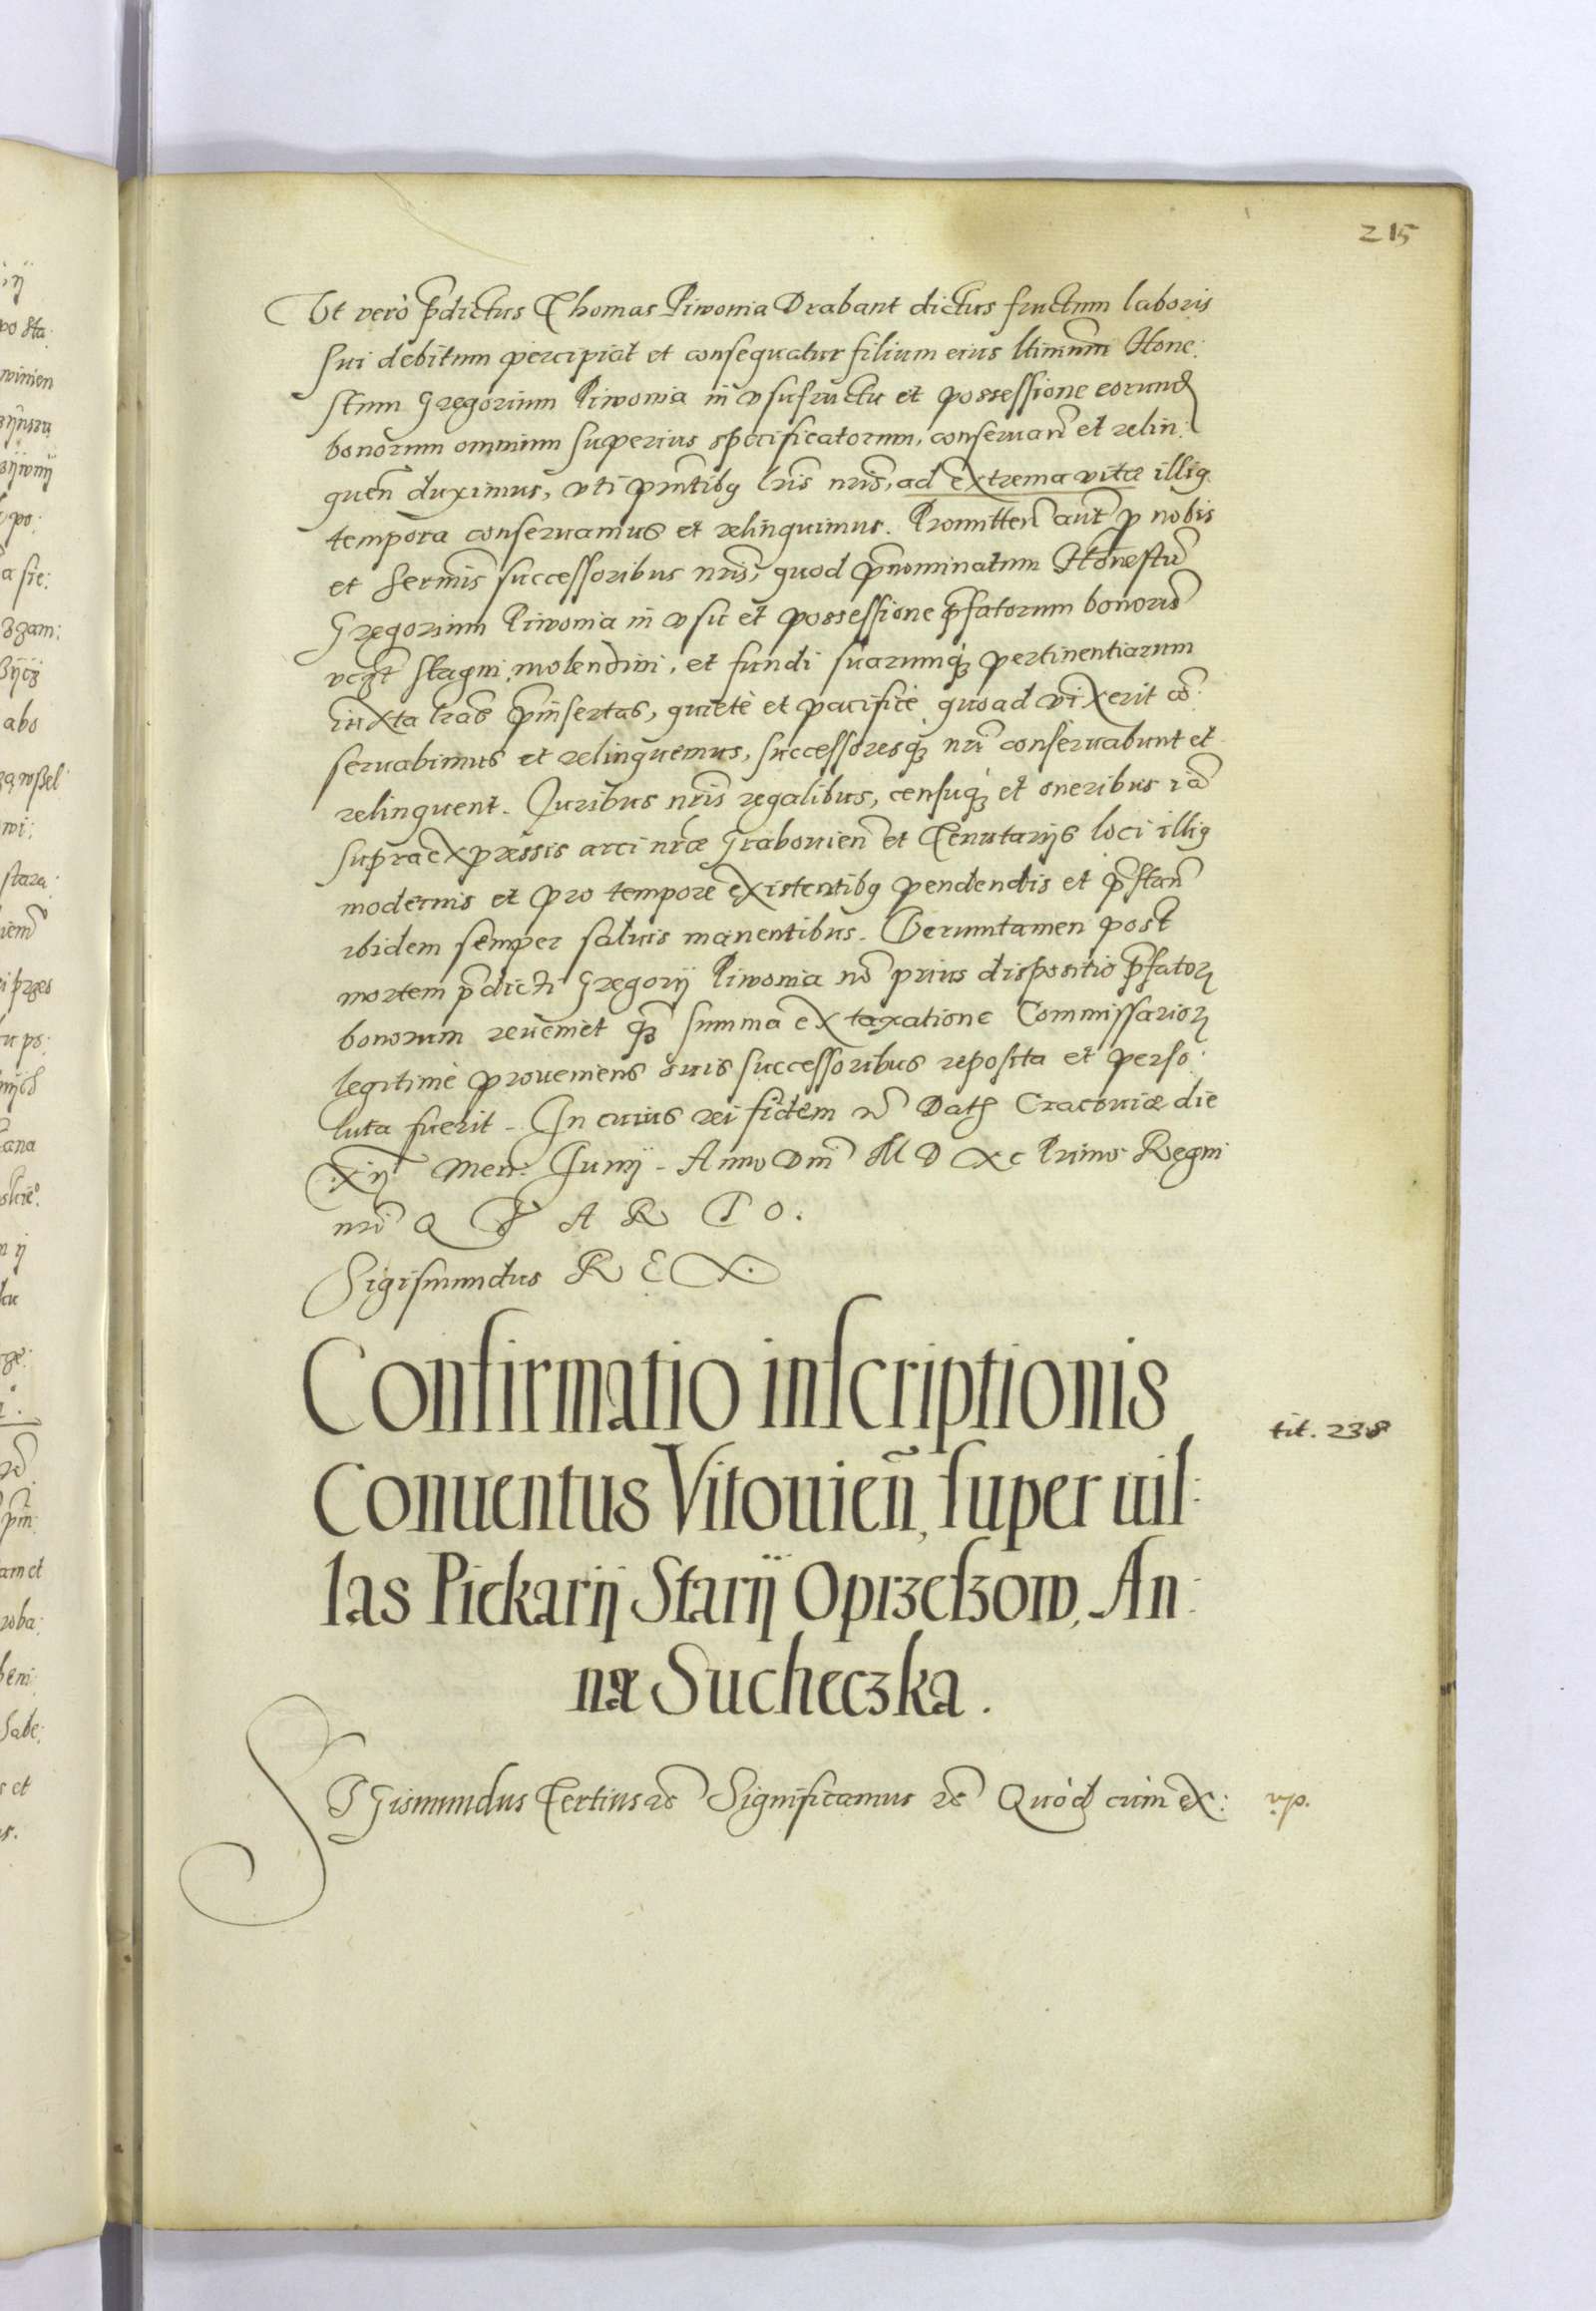 215
Ut verò p̄dictus Thomas Piwonia Drabant dictus fructum laboris
sui debitum percipiat et consequatur filium eius ltimum Hone:
stum Gregorium Piwonia in usufructu et possessione eorund
bonorum omnium superius specificatorum, conseruan̄ et relin:
quen̄ duximus, uti pn̄tibq lr̄is nr̄is, ad extrema vitæ illiq
tempora conseruamus et relinquimus. Promitten̄ aut̄ p nobis
et Serm̄is successoribus nr̄is, quod p̄nominatum Honestū
Gregorium Piwonia in usu et possessione p̄fatorum bonorū
vczt stagni, molendini, et fundi suarumq3 pertinentiarum
iuxta lr̄as p̄insertas, quietè et pacificè quoad vixerit cō:
seruabimus et relinquemus, successoresq3 nr̄i conseruabunt et
relinquent. Iuribus nr̄is regalibus, censuq3 et oneribus iā
supra expressis arci nr̄æ Grabouien̄ et Tenutarijs loci illiq
modernis et pro tempore existentibq pendendis et p̄stan̄
ibidem semper saluis manentibus. Veruntamen post
mortem p̄dicti Gregorij Piwonia nō prius dispositio p̄fator
bonorum reueniet q̄3 summa ex taxatione Commissarior
legitimè proueniens suis successoribus reposita et perso:
luta fuerit. In cuius rei fidem rc̄ Dat Cracouiæ die
xij Men̄. Junij. Anno Dn̄i M D xc Primo Regni
nr̄i Q T A R T O.
Sigismundus R E X.
Confirmatio inscriptionis
tit. 238
Conuentus Vitouień, super uil:
las Piekarij Starij Oprzeßow, An:
næ Sucheczka.
SIGismundus Tertius rc̄ Significamus rc̄ Quòd cùm ex: